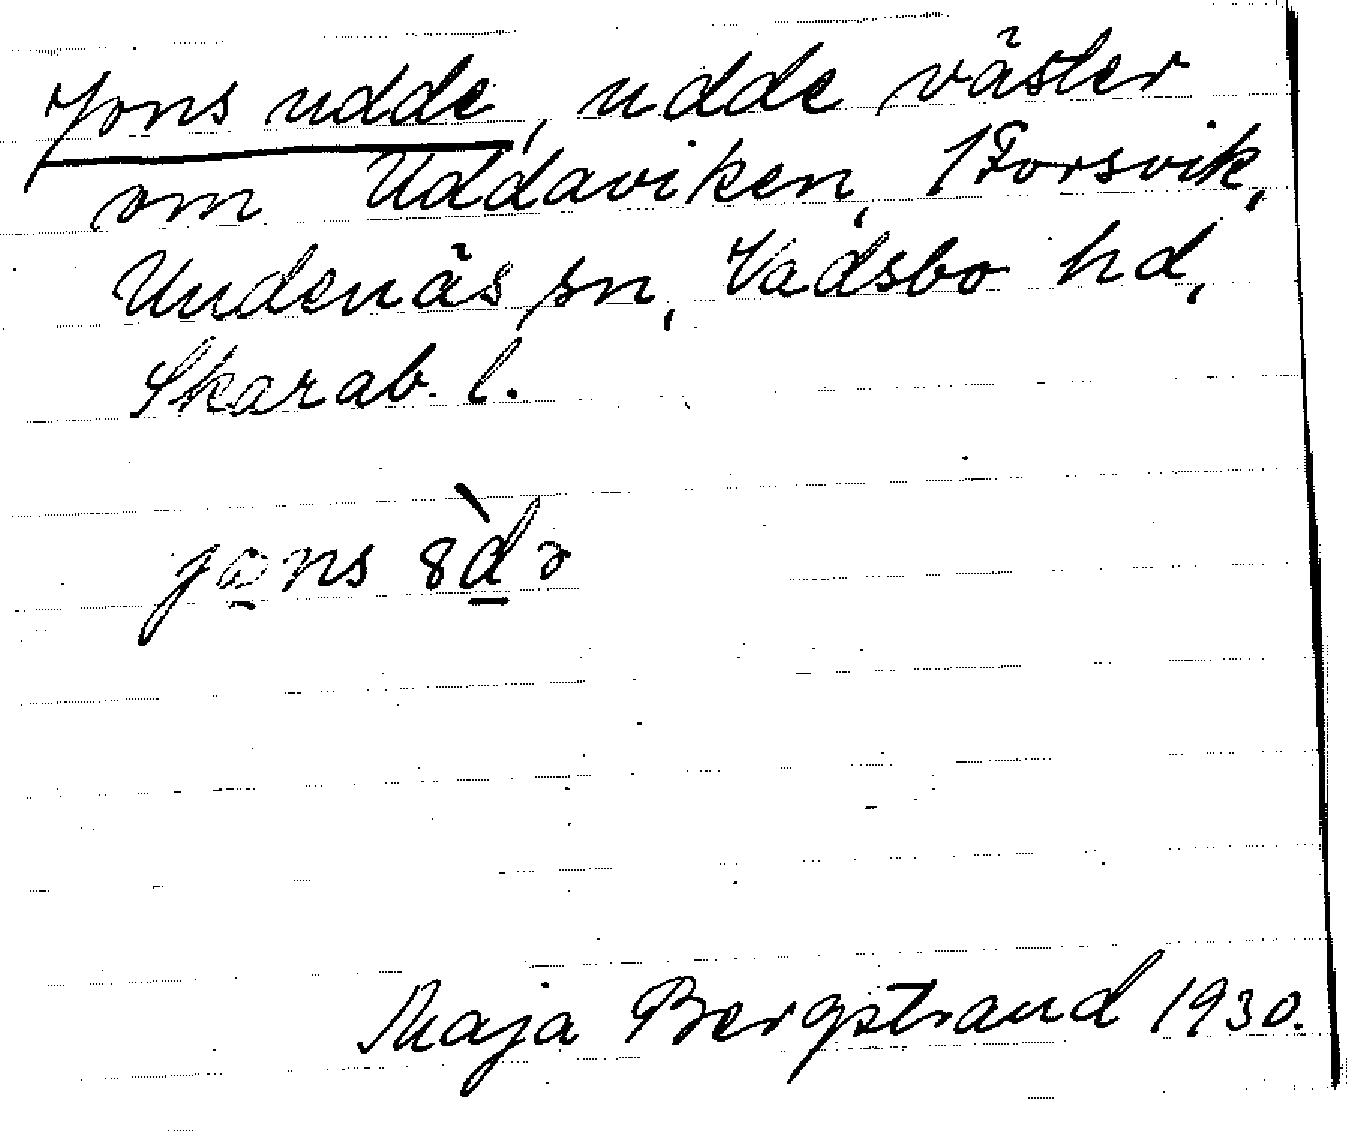 Jons udde, udde väster
om Uddaviken, 1 Forsvik,
Undenäs sn, Vadsbo hd,
Skarab. l.
jons
Maja Bergstrand 1930.